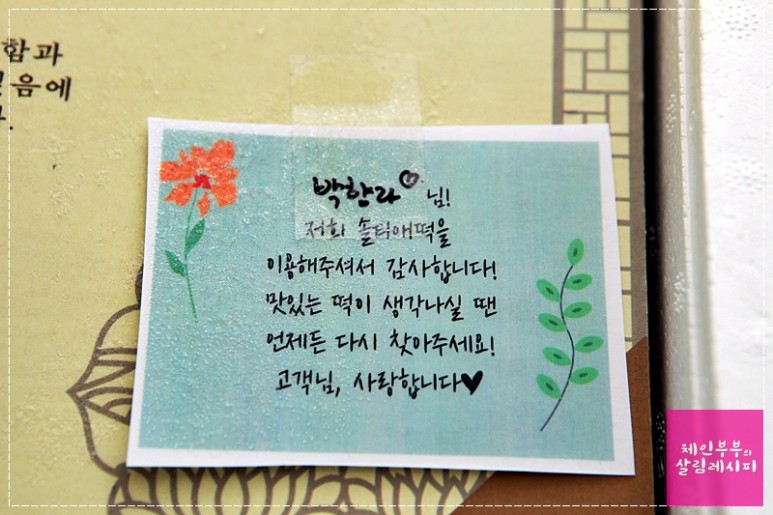 함과
음에
박한라 님!
저희 솔티애떡을
이용해주셔서 감사합니다!
맛있는 떡이 생각나실 땐
언제든 다시 찾아주세요!
고객님, 사랑합니다♥
체인부부의
살림레시피